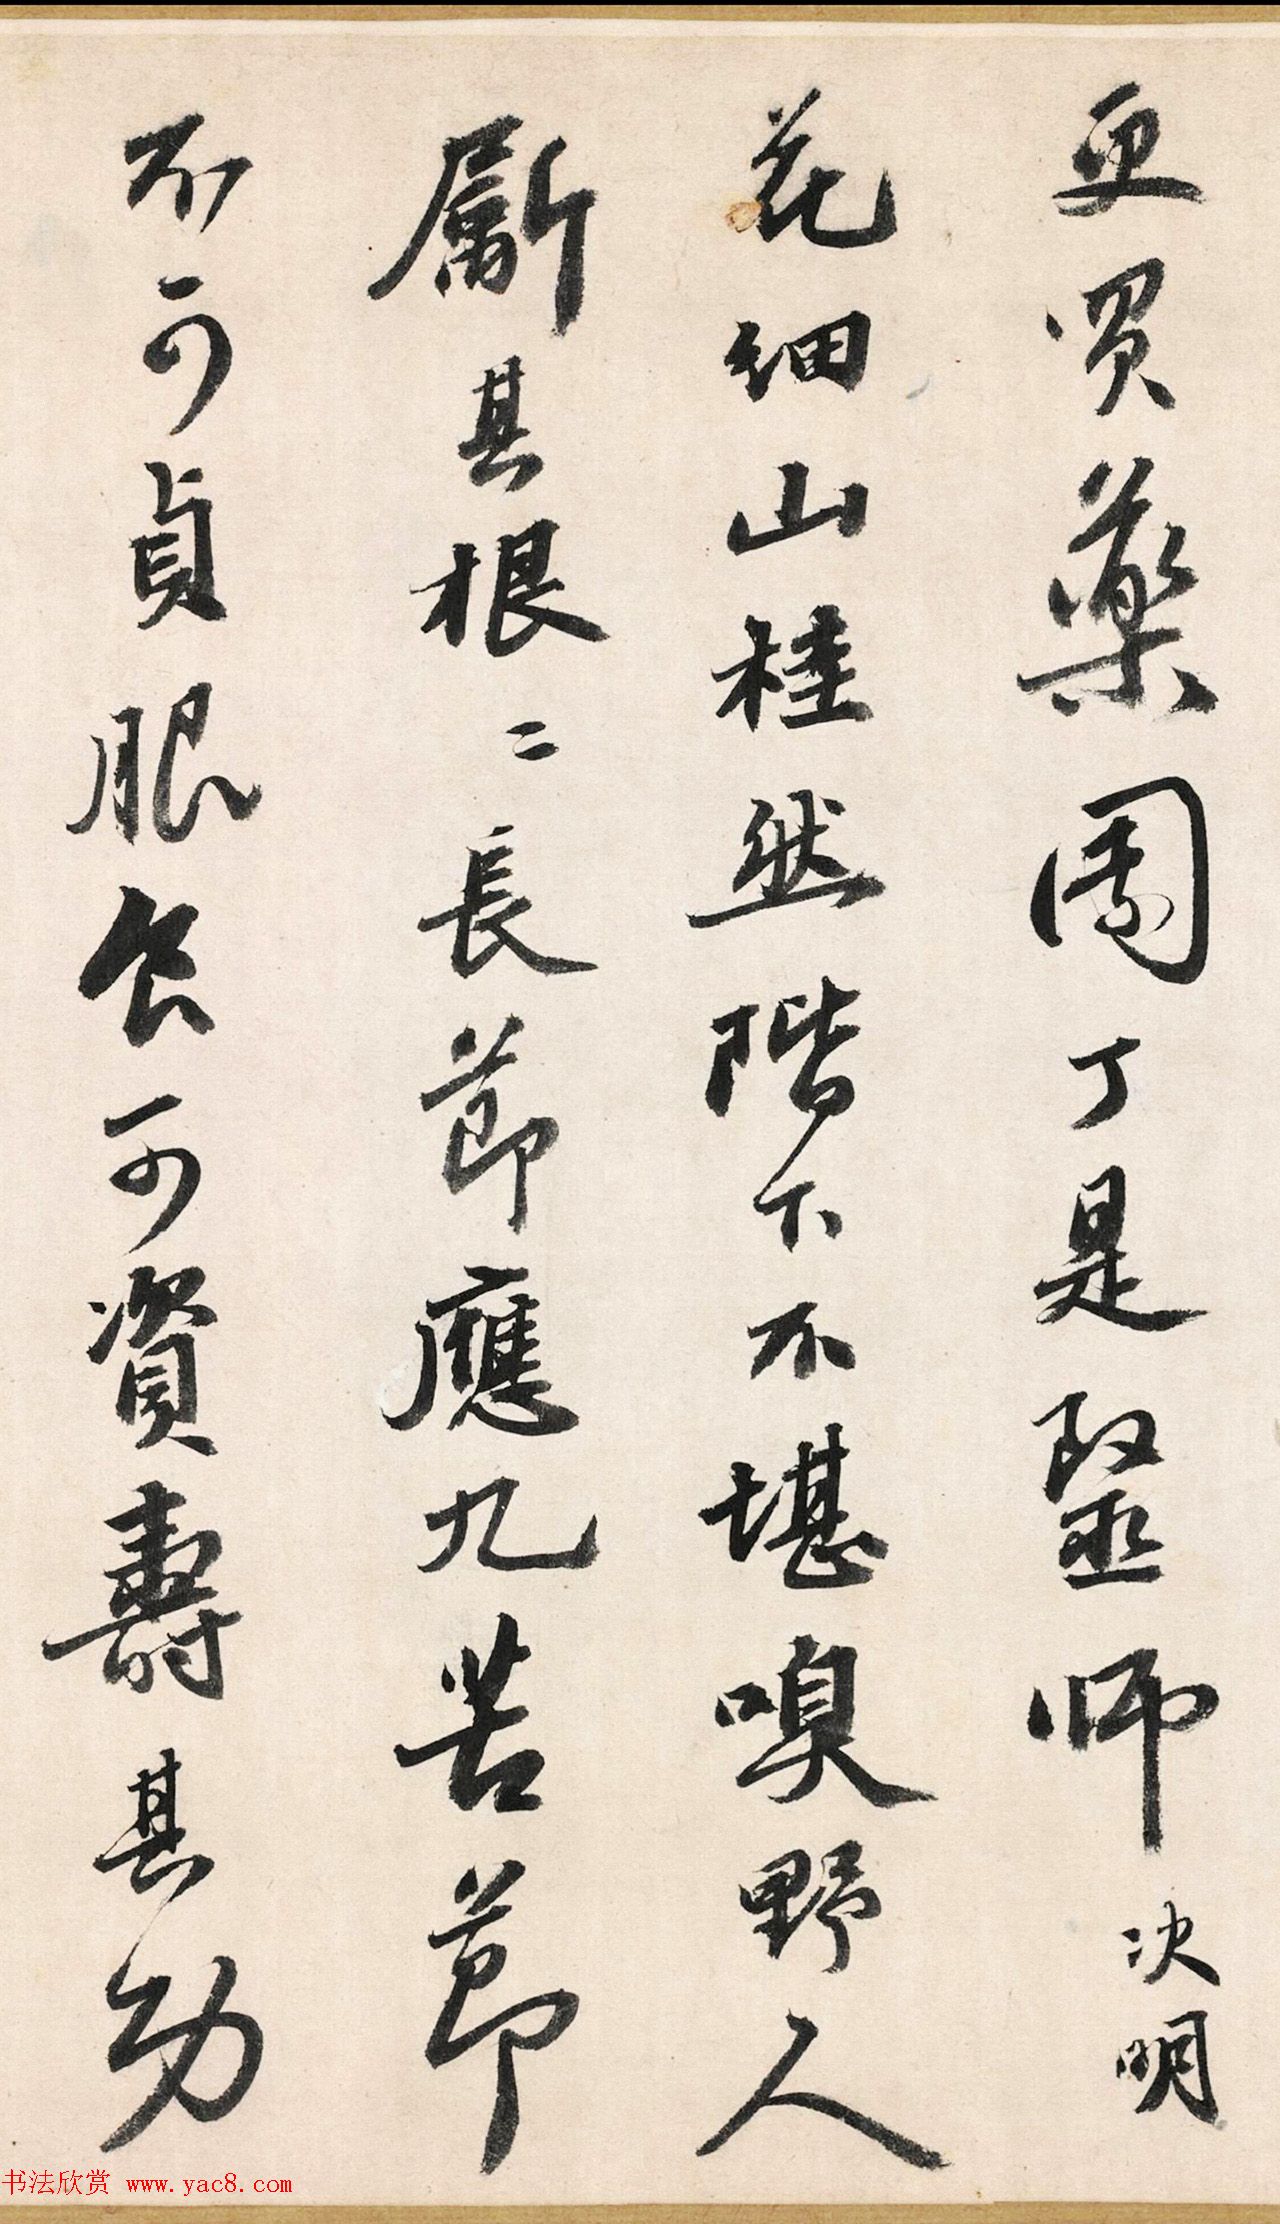 更買藥闌丁是毉師決明
花細山桂然階下不堪嗅野人
斸其根二長節應九苦節
不可貞服食可資壽其功
书法欣赏 www.yac8.com